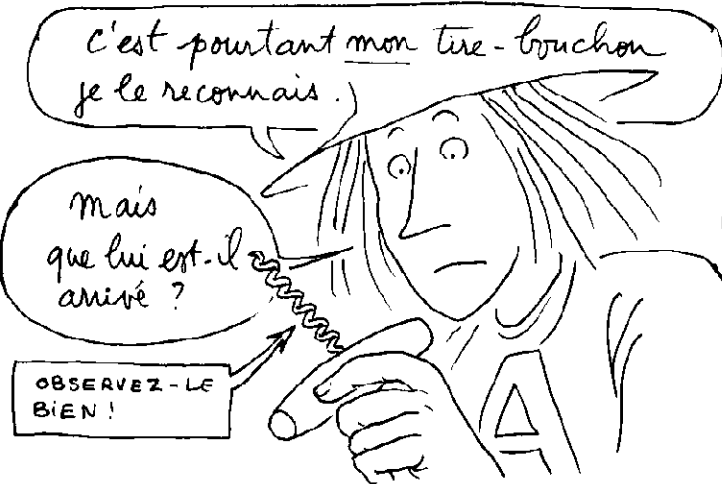 c'est pourtant mon tire-bouchon
je le reconnais.
mais
que lui est-il
arrivé ?
OBSERVEZ-LE
BIEN !
A